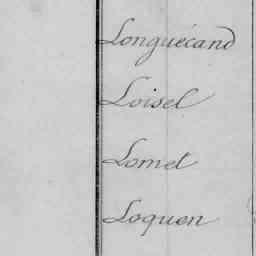 Longuécand
Loisel
Lomet
Loquen